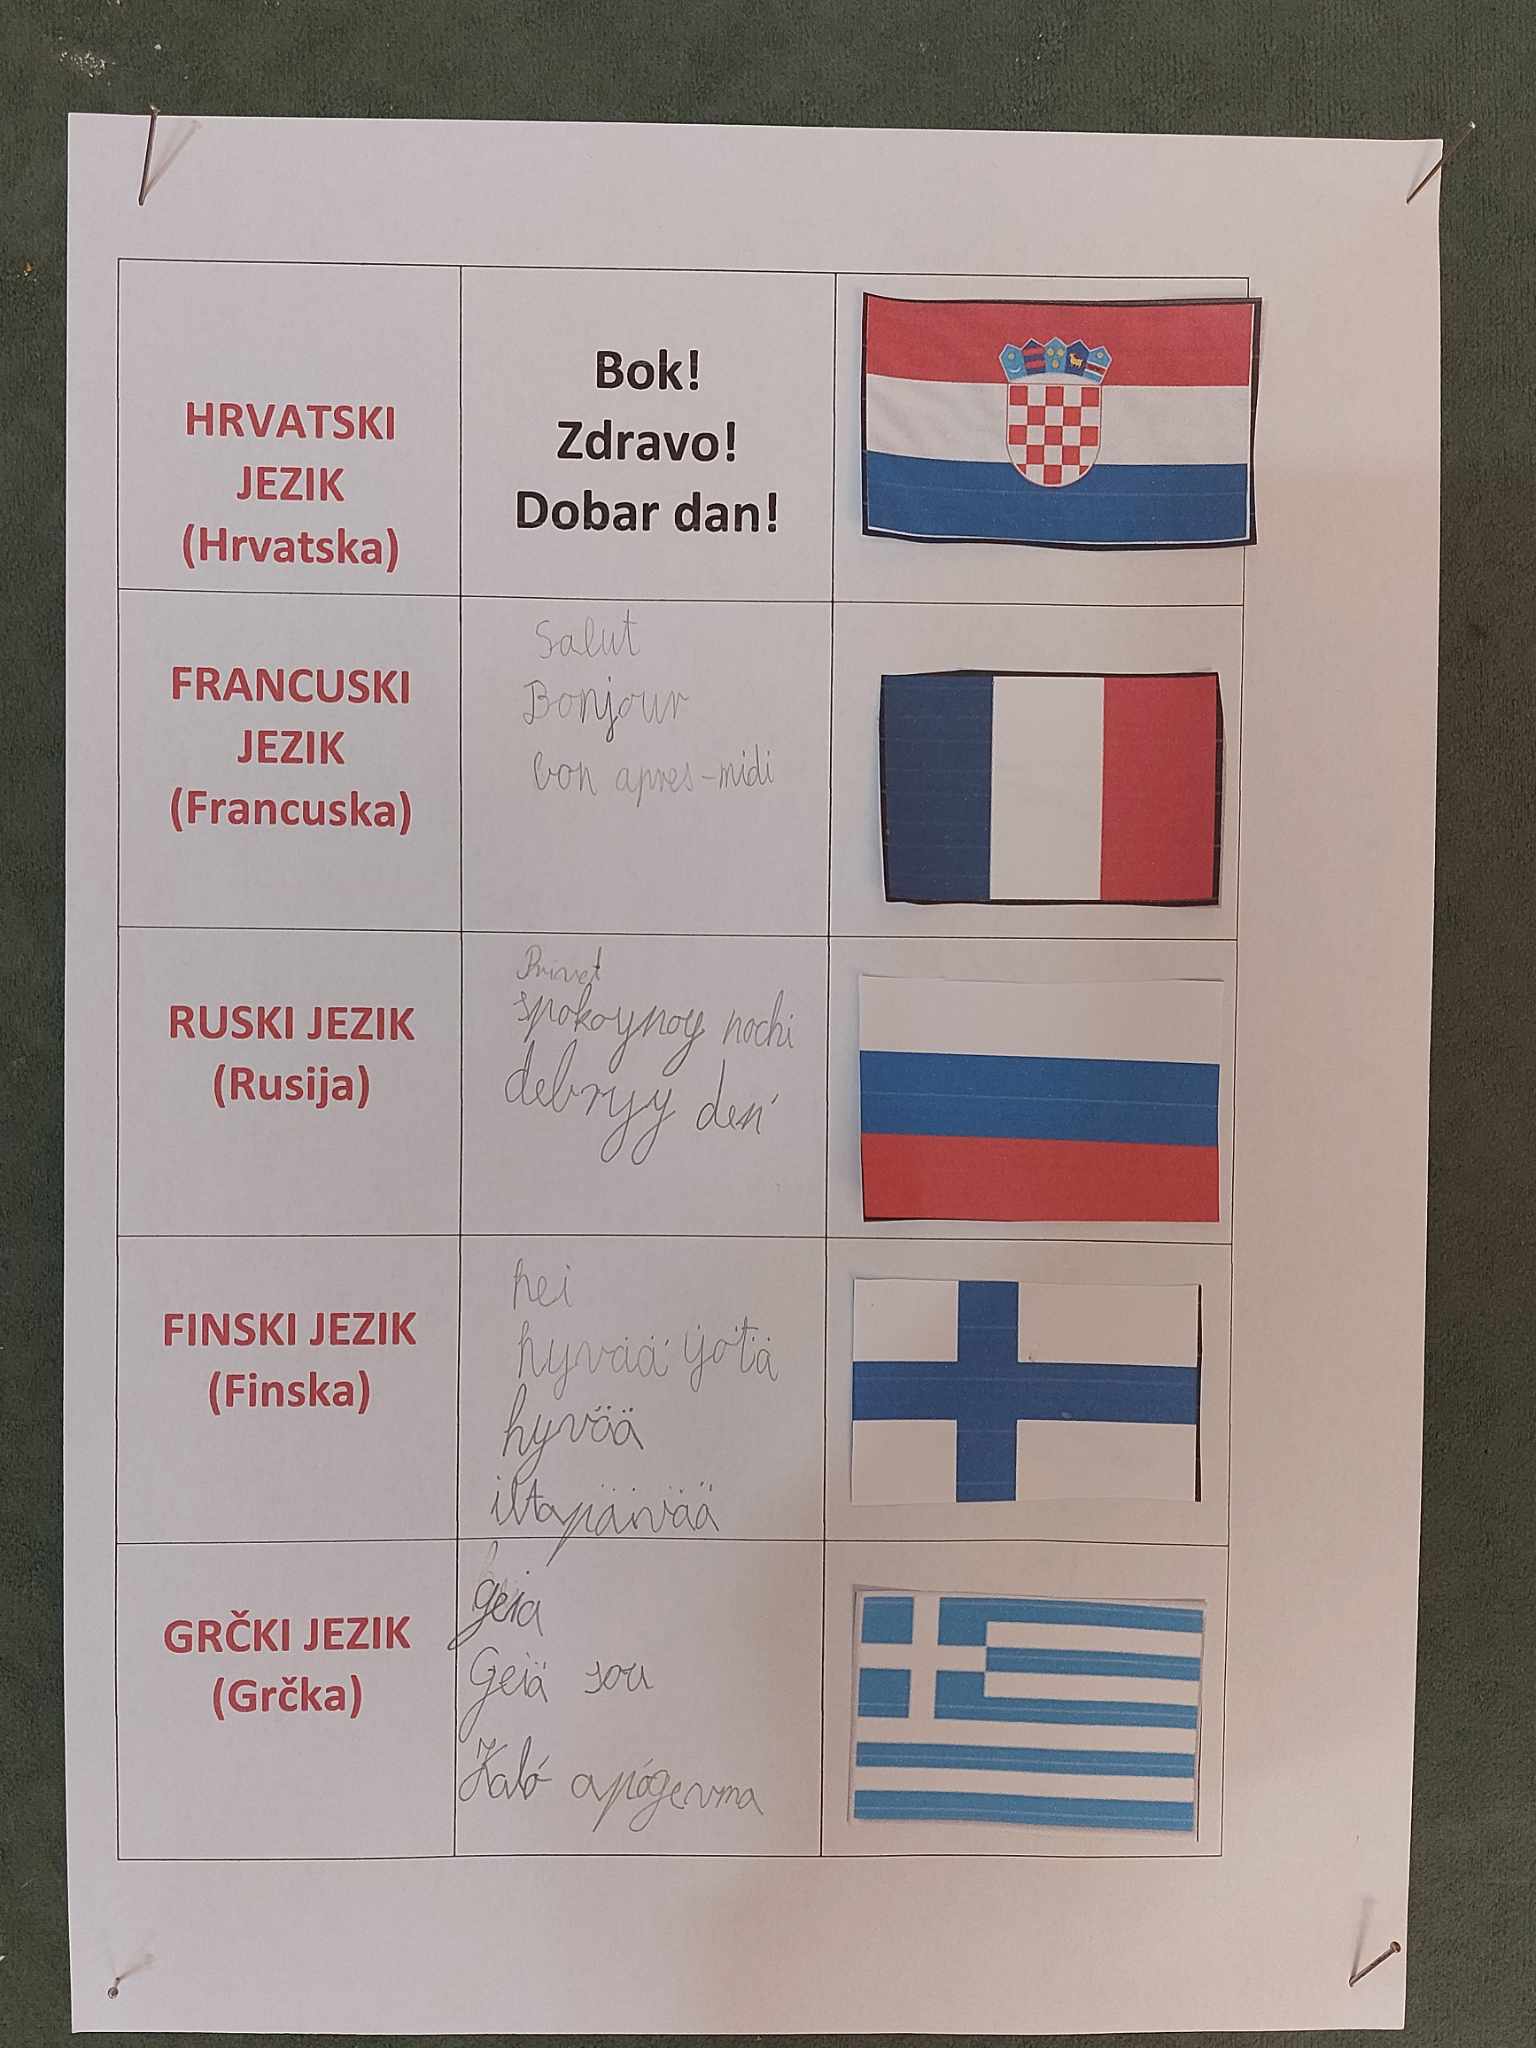 HRVATSKI
JEZIK
(Hrvatska)
Bok!
Zdravo!
Dobar dan!
FRANCUSKI
JEZIK
(Francuska)
Salut
Bonjour
bon apres-midi
RUSKI JEZIK
(Rusija)
Privet
spokoynoy nochi
debryy den'
FINSKI JEZIK
(Finska)
hei
hyvää yötä
hyvää
iltapäivää
GRČKI JEZIK
(Grčka)
geia
Geiä sou
Kaló apógevma